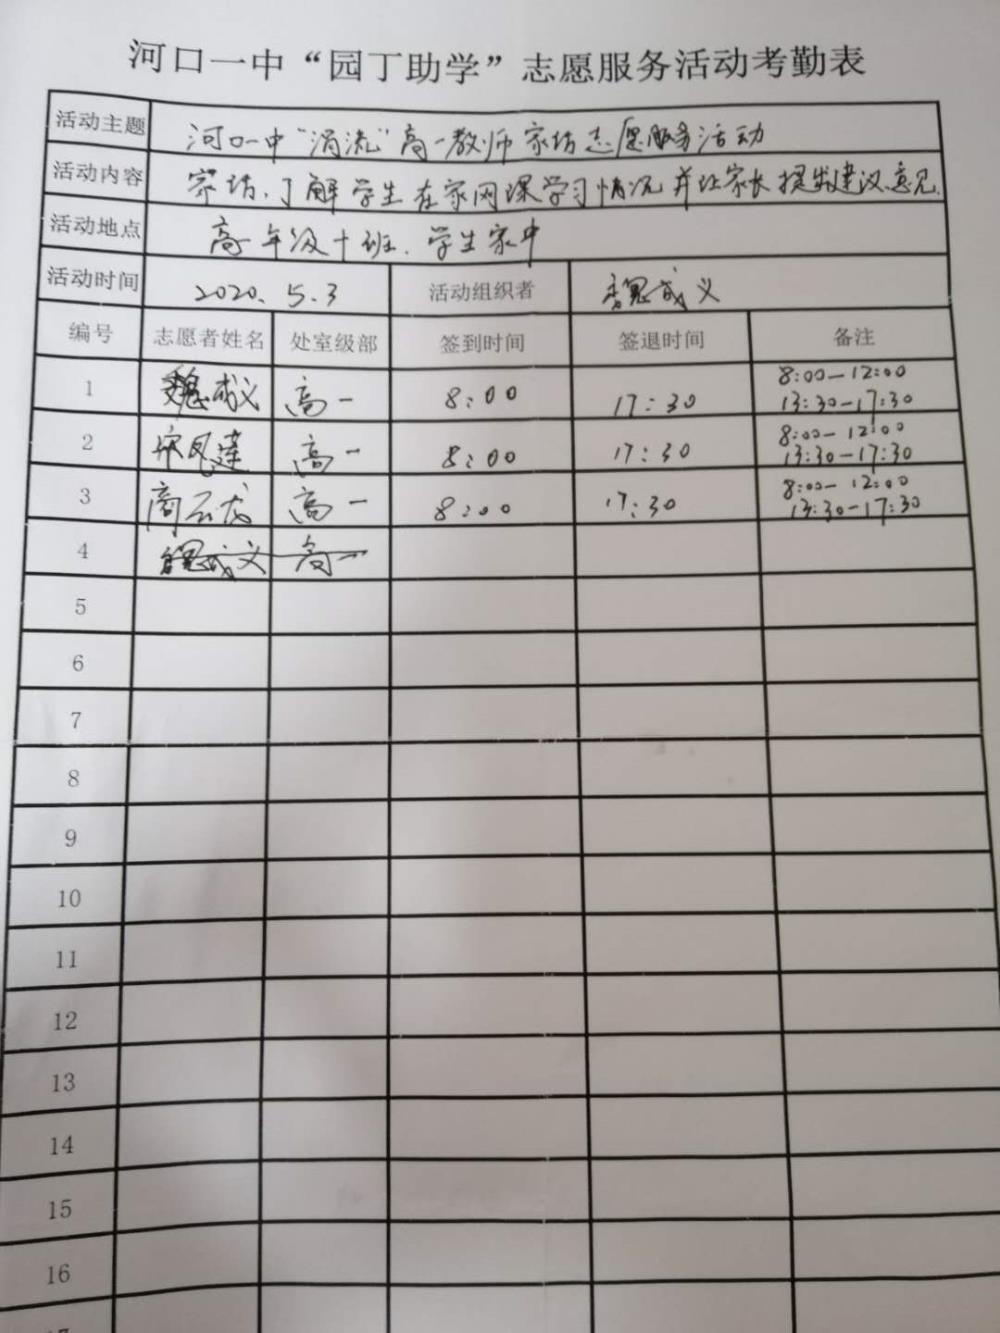 河口一中“园丁助学”志愿服务活动考勤表
活动主题 河口一中“涓流”高一教师家访志愿服务活动
活动内容 家访,了解学生在家网课学习情况并让家长提出建议、意见.
活动地点 高一年级十班、学生家中
活动时间 2020.5.3 活动组织者 魏成义
编号 志愿者姓名 处室级部 签到时间 签退时间 备注
1 魏成义 高一 8:00 17:30 8:00-12:00
13:30-17:30
2 宋凤莲 高一 8:00 17:30 8:00-12:00
13:30-17:30
3 商云龙 高一 8:00 17:30 8:00-12:00
13:30-17:30
4 魏成义 高一
5
6
7
8
9
10
11
12
13
14
15
16